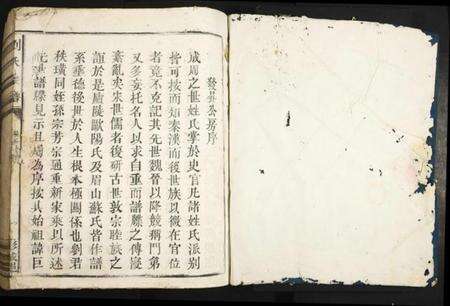 發昇公房序
成周之世姓氏掌於史官凡諸姓氏派別
皆可按而知秦漢而後世族以微在官位
者竟不克記其先世魏晉以降競稱門第
又多妄托名人以求自重而譜牒之傳寖
紊亂矣宋世儒者復研古世敦宗睦族之
誼於是廬陵歐陽氏及眉山蘇氏皆作譜
系垂德後世於人生根本極關係也劉君
秩璜同姪孫宗芳宗適重新家乘以所述
世譜牒見示且囑為序按氏始祖諱巨
劉氏 譜